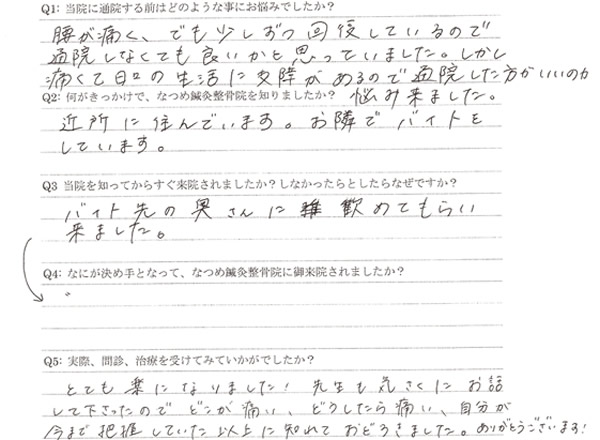 Q1: 当院に通院する前はどのような事にお悩みでしたか？
腰が痛く、でも少しずつ回復しているので
通院しなくても良いかと思っていました。しかし
痛くて日々の生活に支障があるので通院した方がいいのか
Q2: 何がきっかけで、なつめ鍼灸整骨院を知りましたか？ 悩み来ました。
近所に住んでいます。お隣でバイトを
しています。
Q3 当院を知ってからすぐ来院されましたか？しなかったらとしたらなぜですか？
バイト先の奥さんに歓めてもらい
来ました。
Q4: なにが決め手となって、なつめ鍼灸整骨院に御来院されましたか？
Q5: 実際、問診、治療を受けてみていかがでしたか？
とても楽になりました！先生も気さくにお話
して下さったのでどこが痛い、どうしたら痛い、自分が
今まで把握していた以上に知れておどろきました。ありがとうございます！